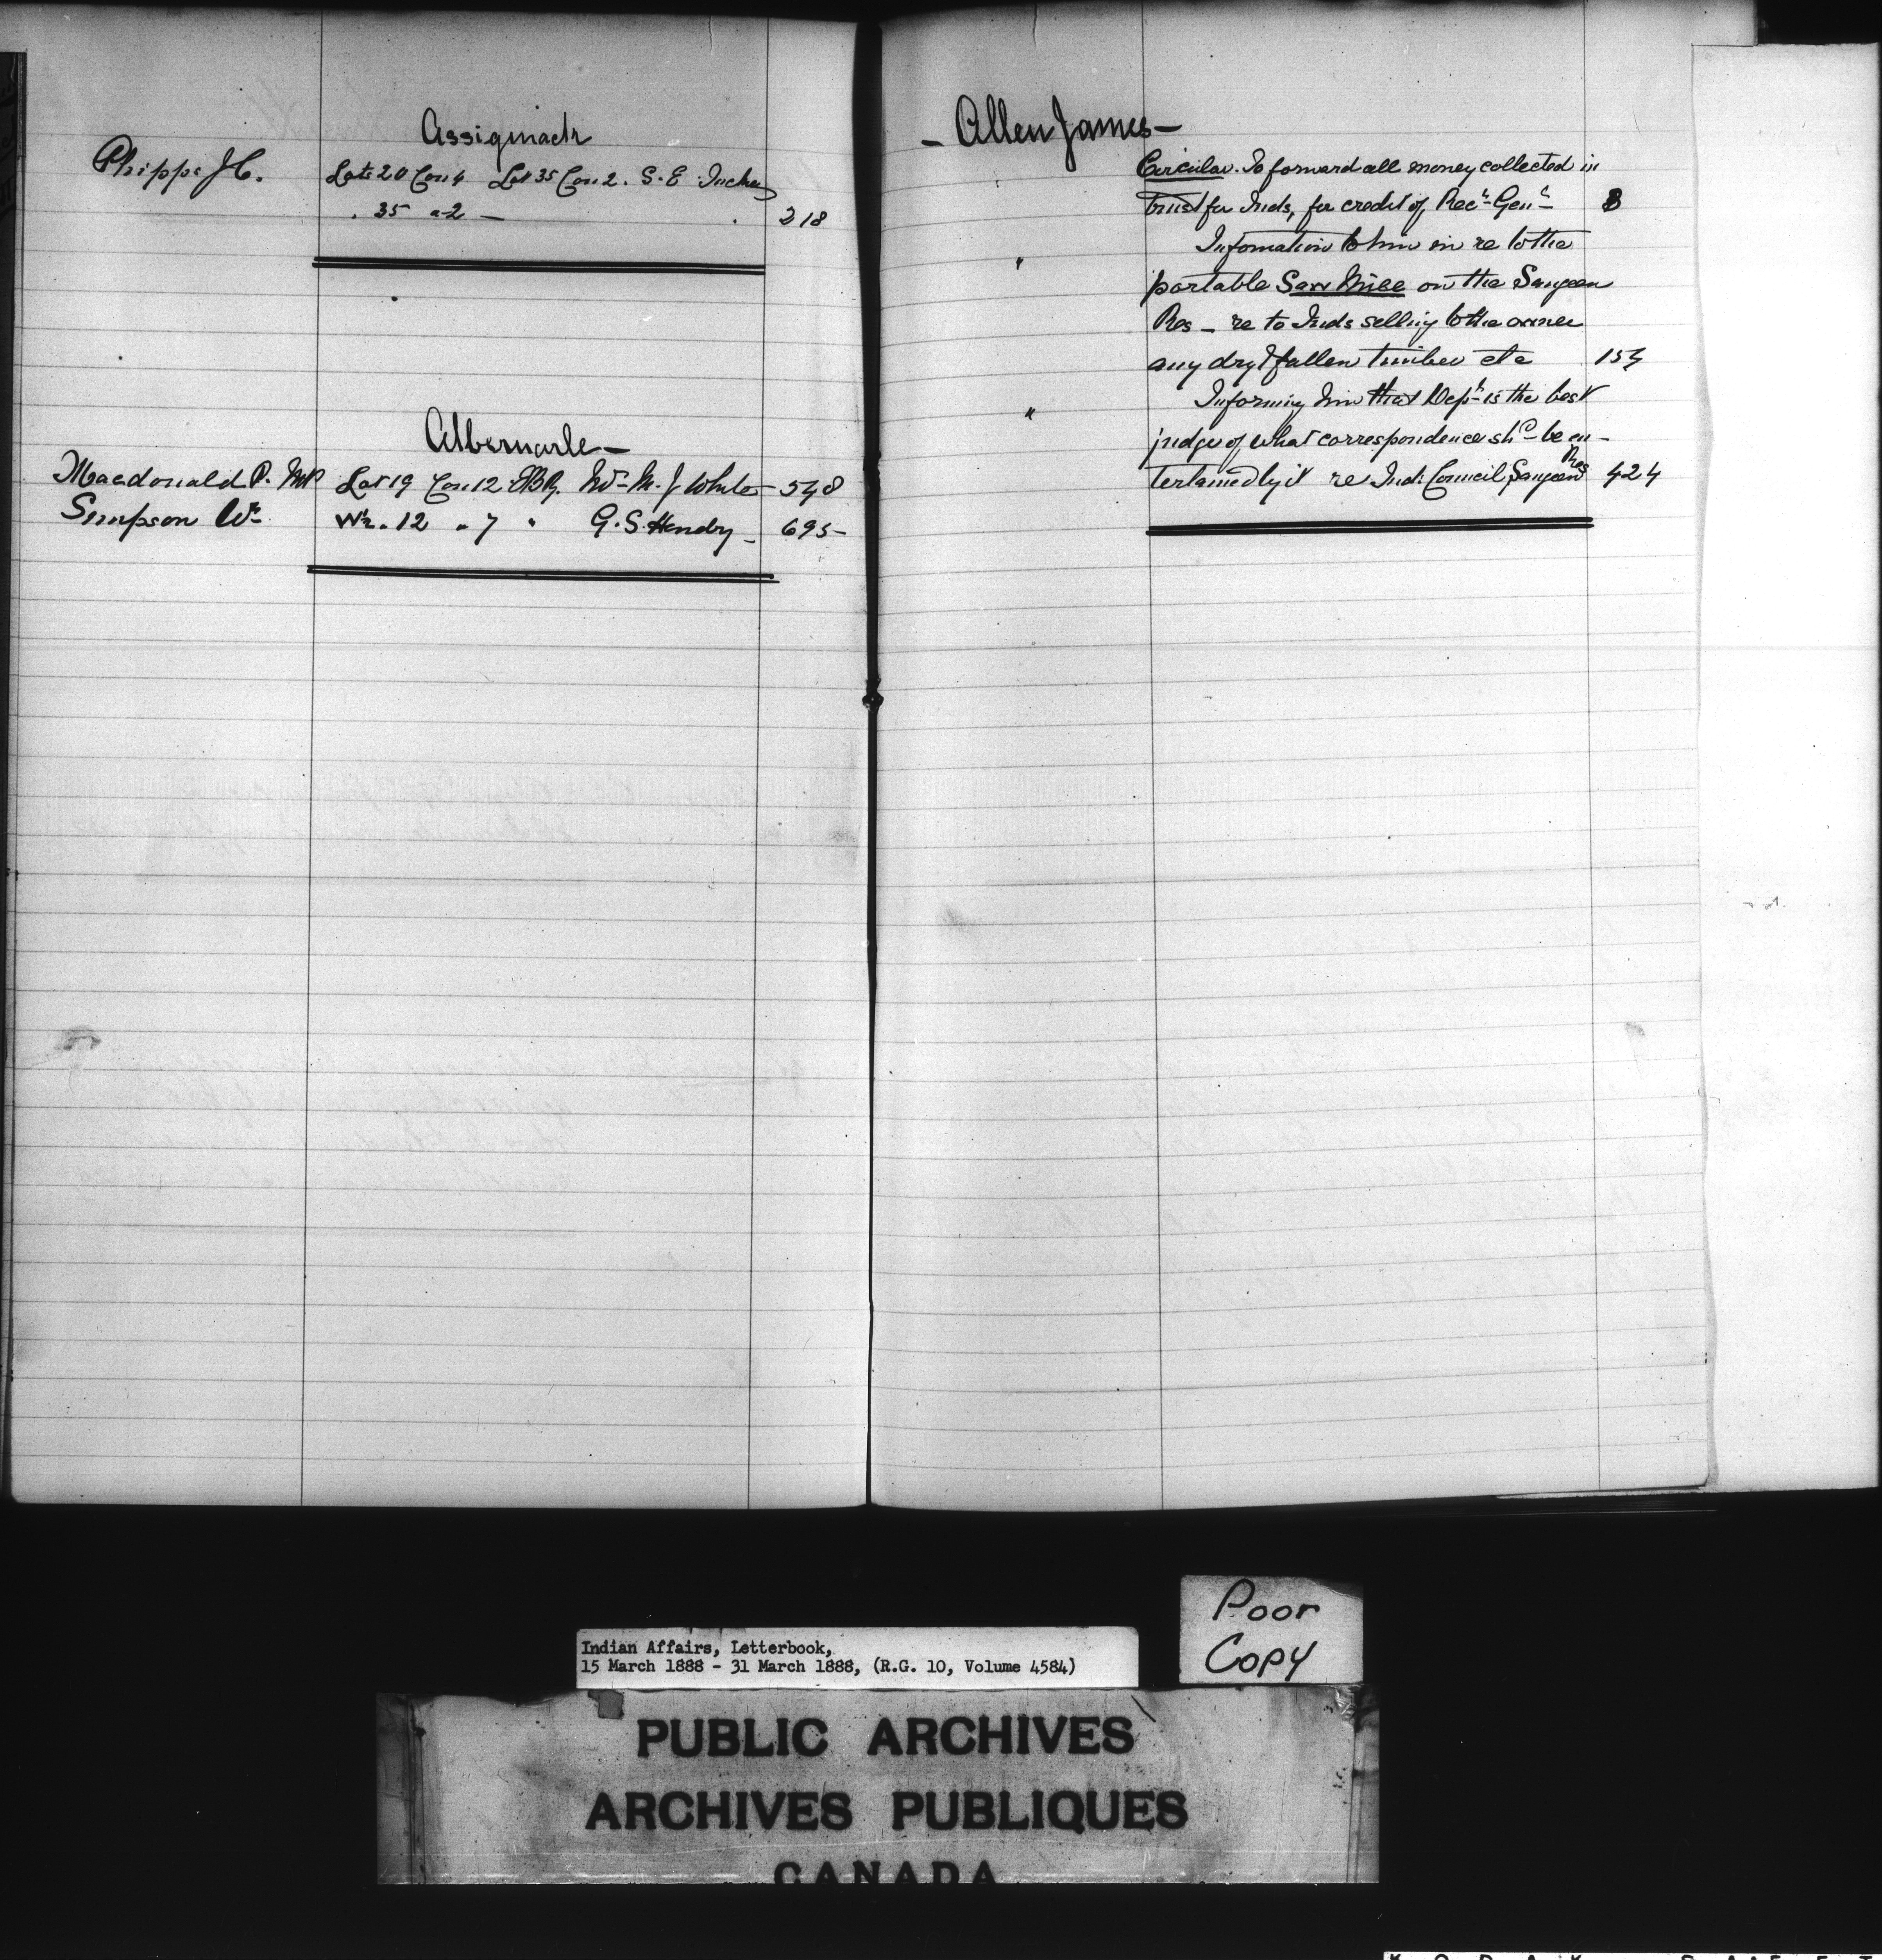 Assiginack
Phipps J.C. Lots 20 Con 4 Lot 35 Con 2. S. E
. 35 " 2 — . 218
Albemarle —
Macdonald P. MP Lot 19 Con 12 EBR. Wm M. J White — 548
Simpson Wm W½ . 12 " 7 " G. S. Hendry — 695 —
— Allen James —
Circular. To forward all money collected in
trust for Inds, for credit of, Recr Genl 8
" Information to him in re to the
portable Saw Mill on the Saugeen
Res — re to Inds selling to the owner
any dry & fallen timber etc 154
" Informing him that Dept is the best
judge of what correspondence shd be en-
tertained by it re Indn Council Saugeen Res 424
Poor
Copy
Indian Affairs, Letterbook,
15 March 1888 - 31 March 1888, (R.G. 10, Volume 4584)
PUBLIC ARCHIVES
ARCHIVES PUBLIQUES
CANADA